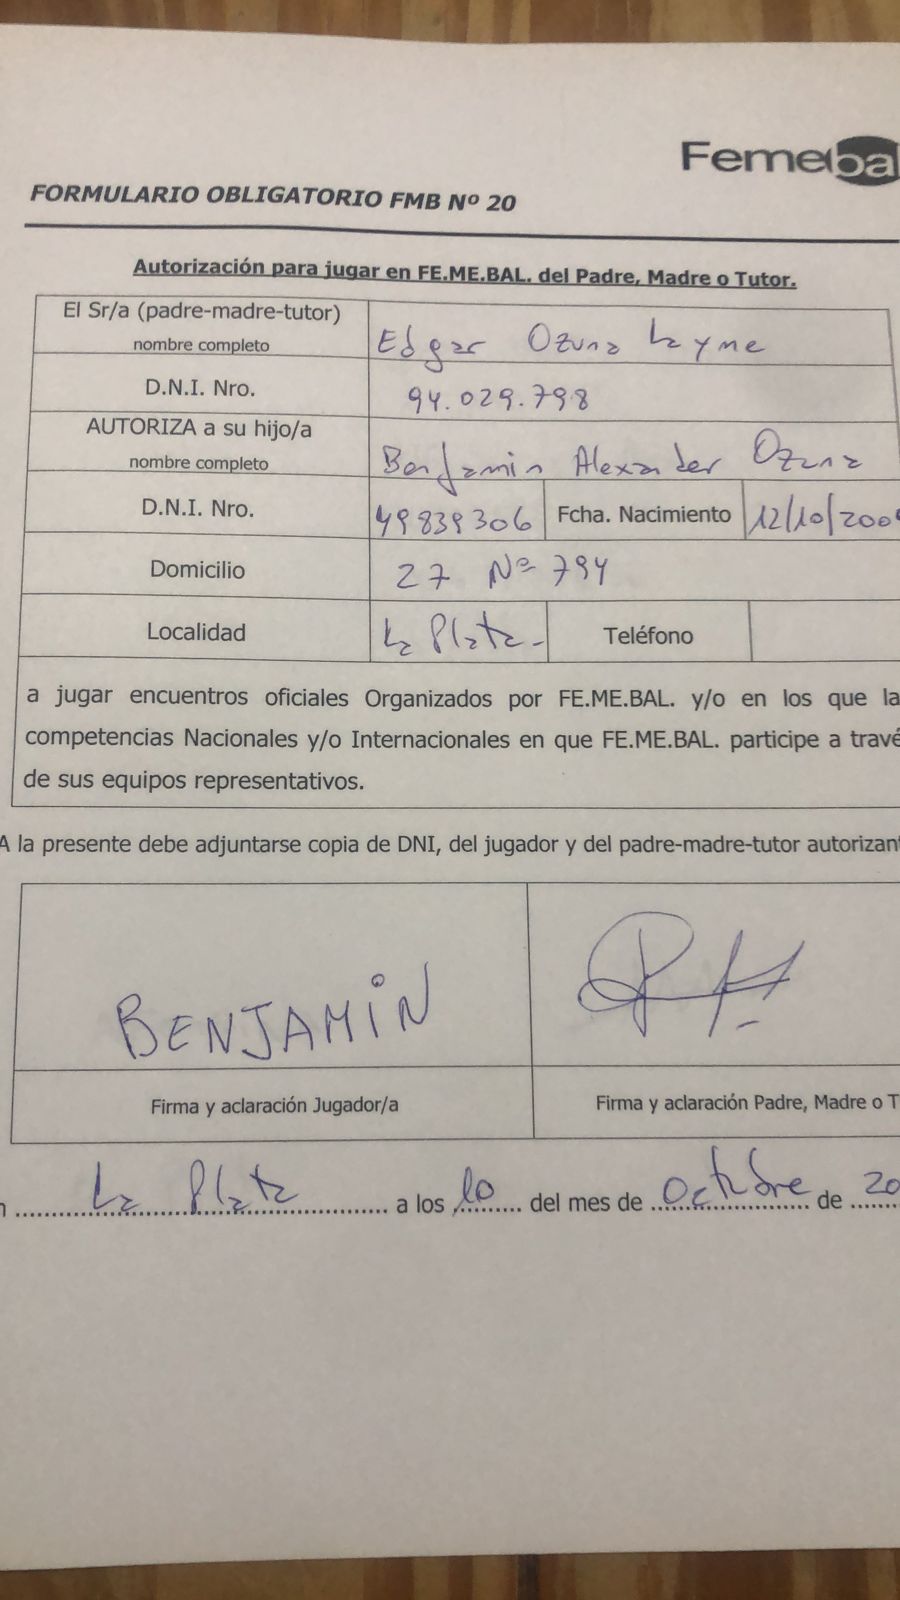 Femeba
FORMULARIO OBLIGATORIO FMB Nº 20
Autorización para jugar en FE.ME.BAL. del Padre, Madre o Tutor.
El Sr/a (padre-madre-tutor)
nombre completo
Edgar Ozuna Layme
D.N.I. Nro.
94.029.798
AUTORIZA a su hijo/a
nombre completo
Benjamin Alexander Ozuna
D.N.I. Nro.
49839306
Fcha. Nacimiento
12/10/200
Domicilio
27 Nº 794
Localidad
La Plata-
Teléfono
a jugar encuentros oficiales Organizados por FE.ME.BAL. y/o en los que la
competencias Nacionales y/o Internacionales en que FE.ME.BAL. participe a travé
de sus equipos representativos.
A la presente debe adjuntarse copia de DNI, del jugador y del padre-madre-tutor autorizan
BENJAMiN
Firma y aclaración Jugador/a
Firma y aclaración Padre, Madre o T
La Plata a los 10 del mes de Octubre de 20